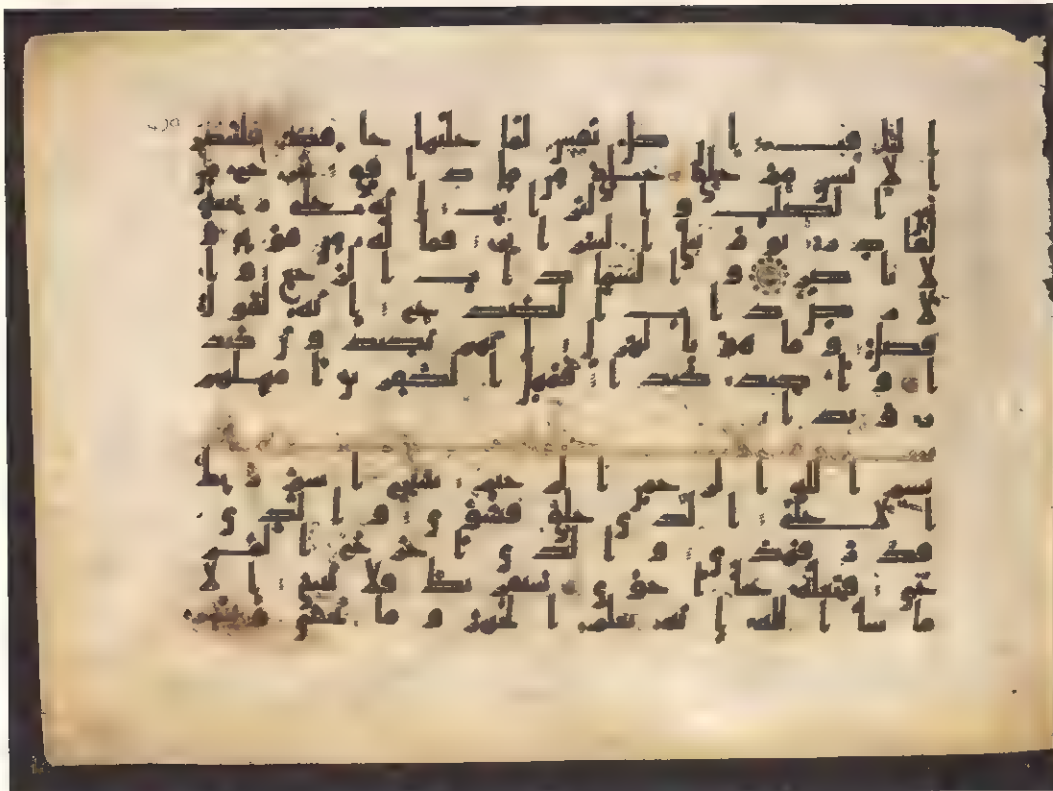 الثاقب ان كل نفس لما عليها حافظ فلينظر
الانسن مم خلق خلق من ما دافق يخرج من
بين الصلب والترائب انه على رجعه
لقادر يوم تبلى السرائر فما له من قوة و
لا ناصر والسما ذات الرجع وا
لارض ذات الصدع انه لقول
فصل وما هو بالهزل انهم يكيدون كيد
ا واكيد كيدا فمهل الكفرين امهلهم
رويدا
بسم الله الرحمن الرحيم سبح اسم ربك
الاعلى الذي خلق فسوى والذي
قدر فهدى والذي اخرج المر
عى فجعله غثا احوى سنقرئك فلا تنسى الا
ما شا الله انه يعلم الجهر وما يخفى